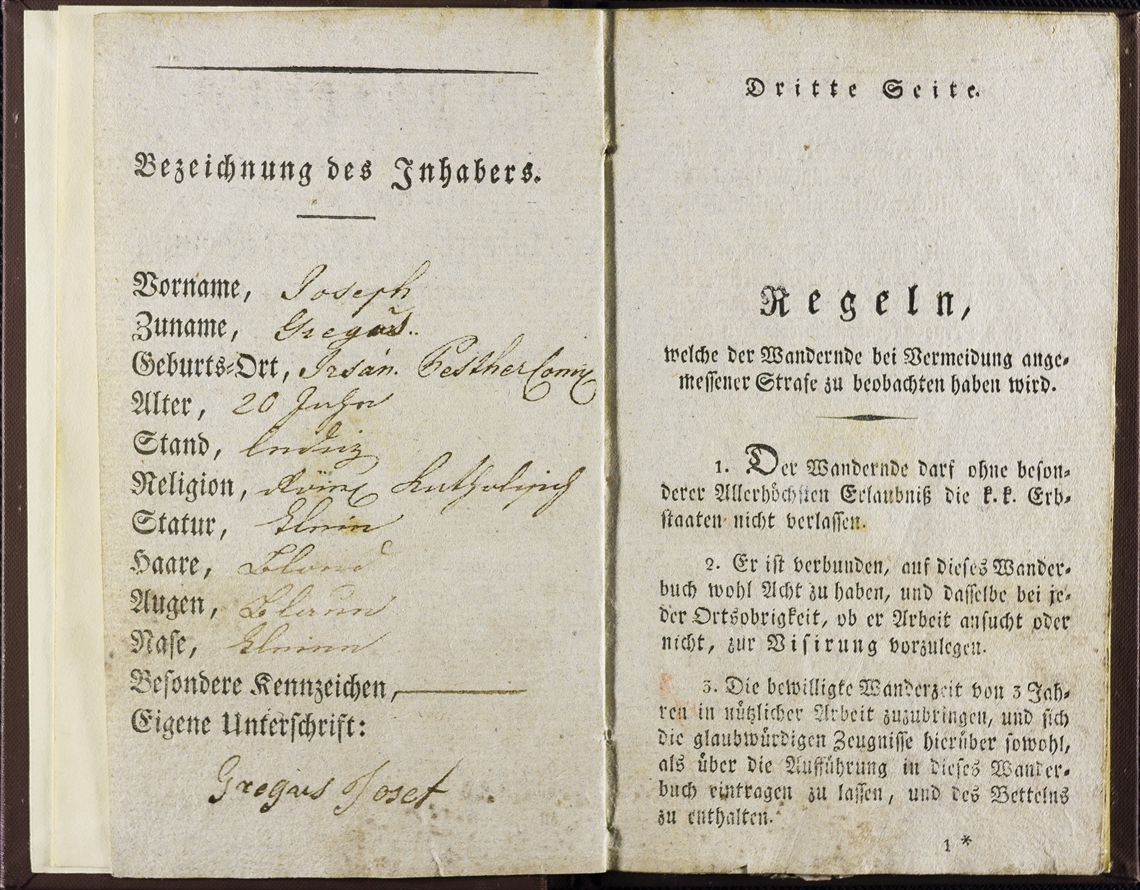 Bezeichnung des Inhabers.
Vorname, Joseph
Zuname, Gregus.
Geburts-Ort, Irsán. Pesther Com
Alter, 20 Jahr
Stand, ledig
Religion, Röm Katholisch
Statur, klein
Haare, Blond
Augen, Blaun
Nase,
Besondere Kennzeichen,
Eigene Unterschrift:
Gregus Josef
Dritte Seite.
Regeln,
welche der Wandernde bei Vermeidung ange-
messener Strafe zu beobachten haben wird.
1. Der Wandernde darf ohne beson-
derer Allerhöchsten Erlaubniß die k. k. Erb-
staaten nicht verlassen.
2. Er ist verbunden, auf dieses Wander-
buch wohl Acht zu haben, und dasselbe bei je-
der Ortsobrigkeit, ob er Arbeit ansucht oder
nicht, zur Visirung vorzulegen.
3. Die bewilligte Wanderzeit von 3 Jah-
ren in nützlicher Arbeit zuzubringen, und sich
die glaubwürdigen Zeugnisse hierüber sowohl,
als über die Aufführung in dieses Wander-
buch eintragen zu lassen, und des Bettelns
zu enthalten.
1 *